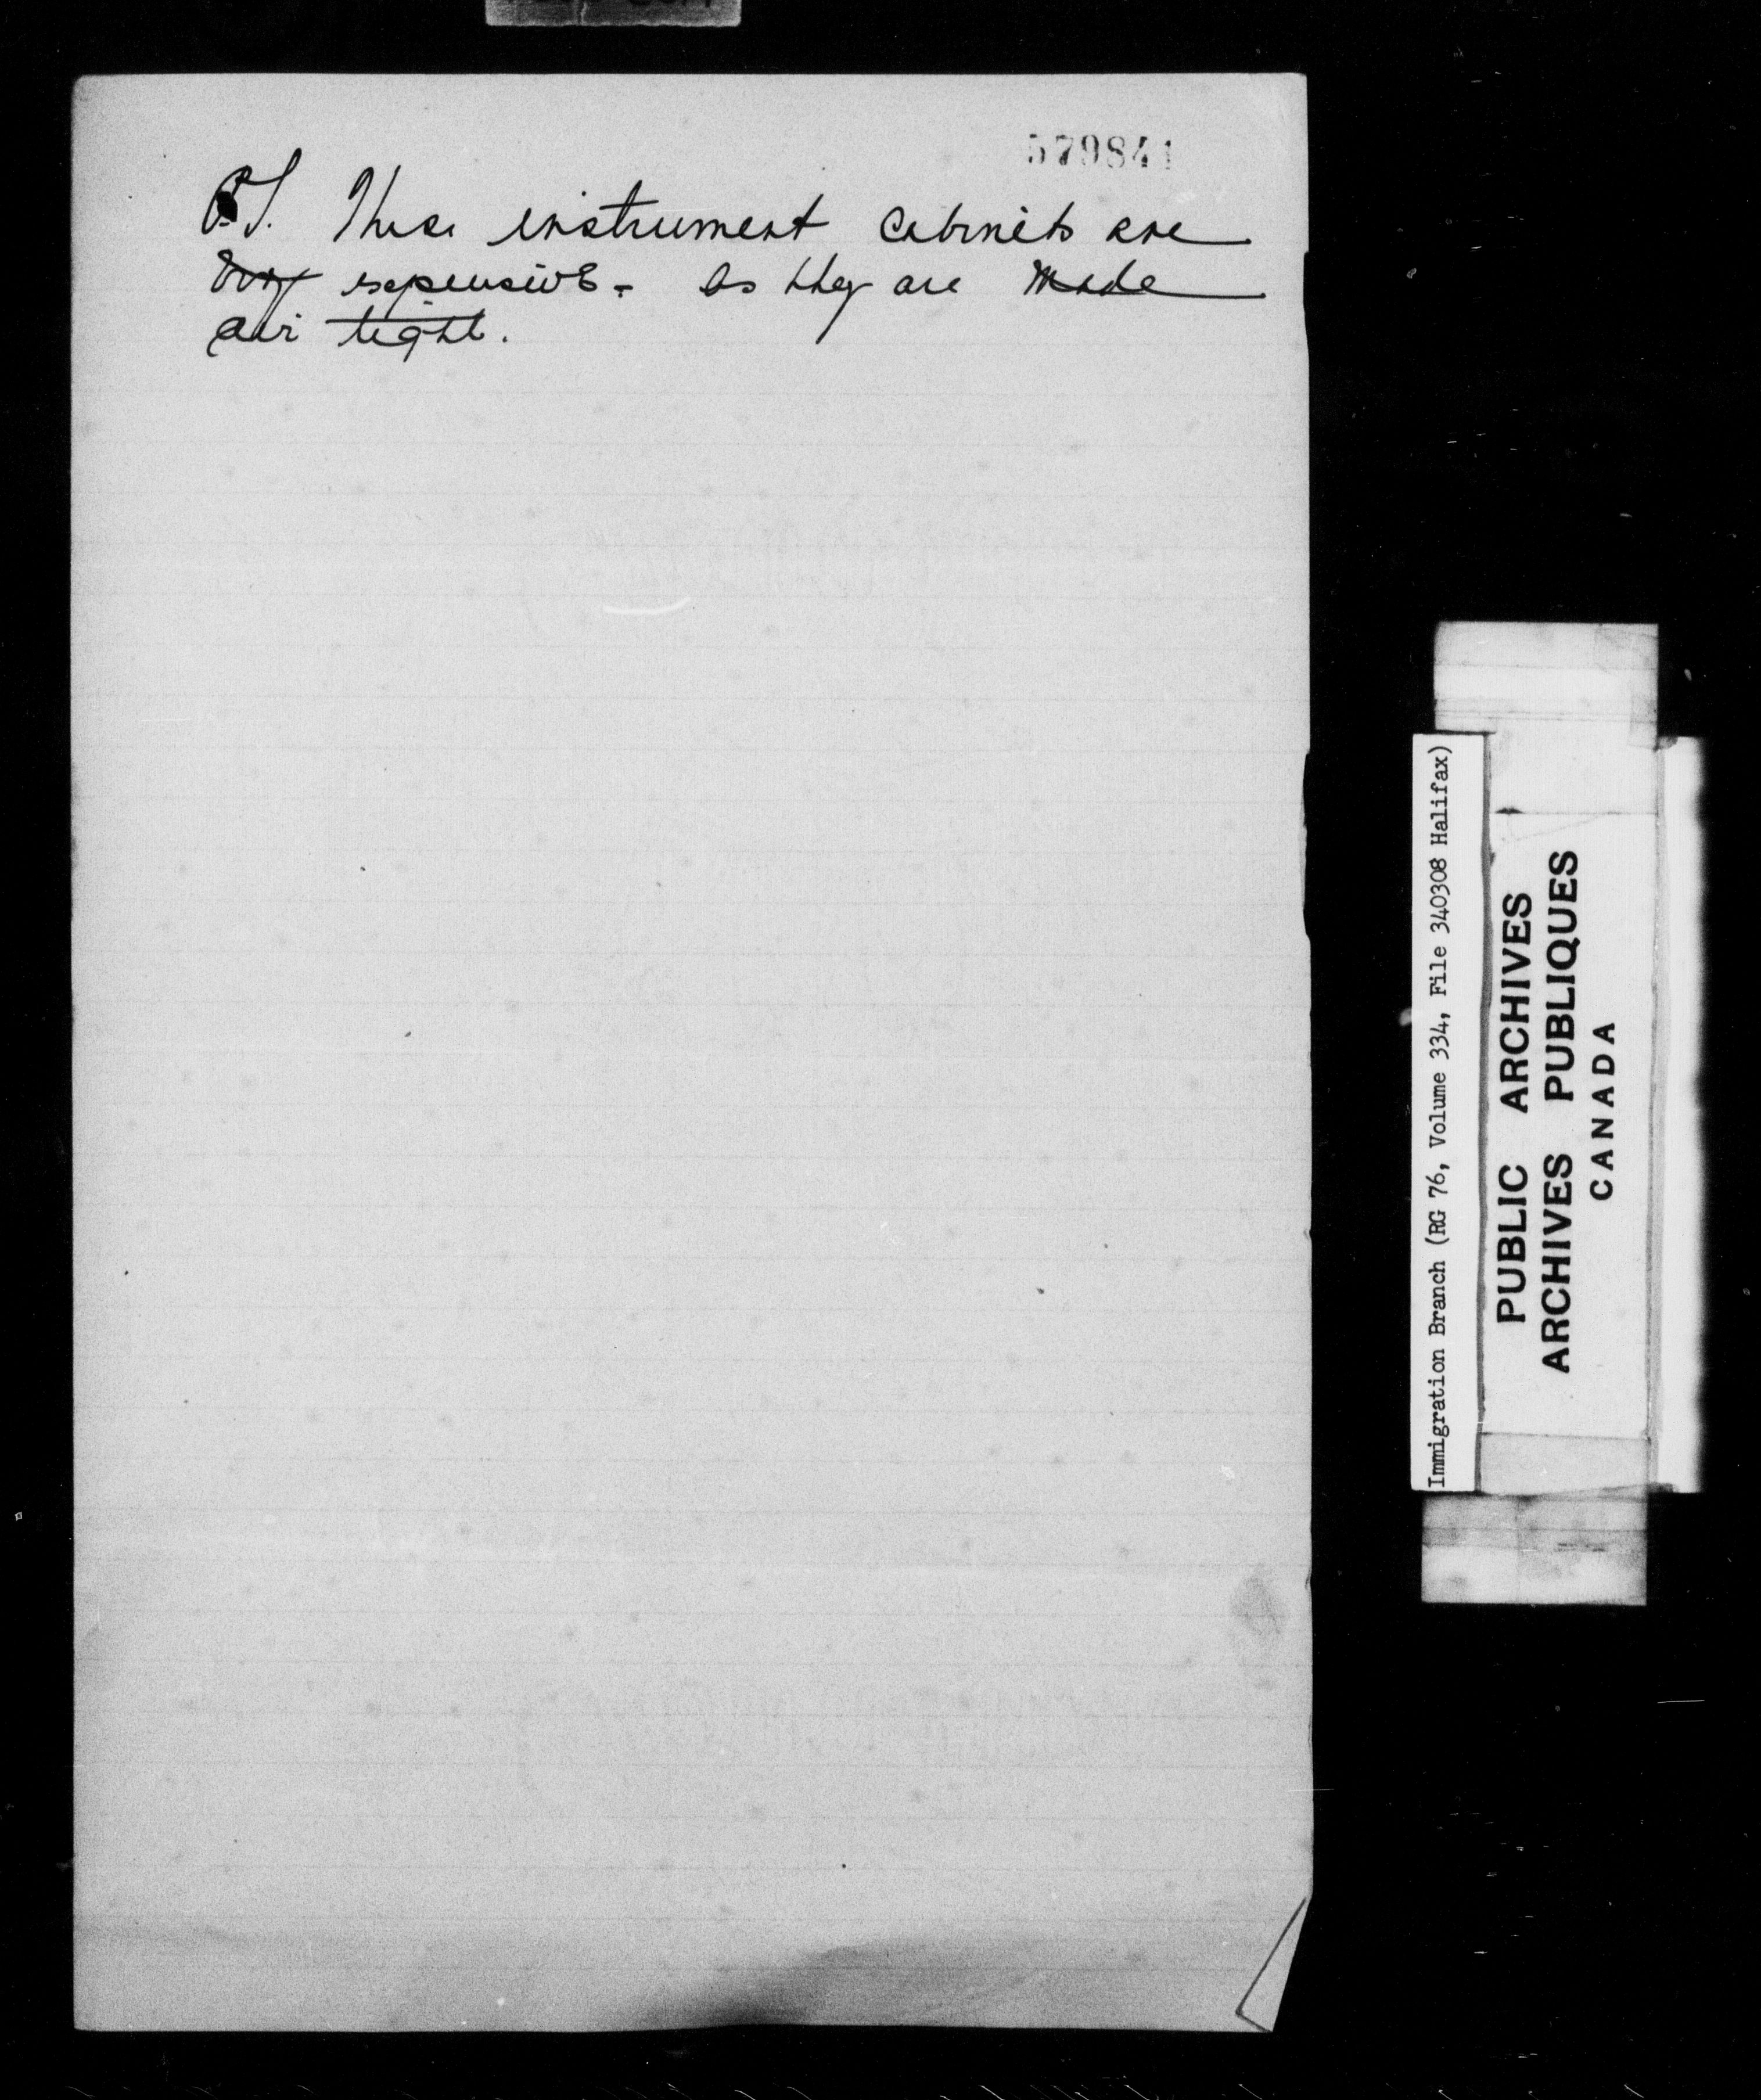 579841
P.S. These instrument cabinets are
very expensive - as they are made
air tight.
Immigration Branch (RG 76, Volume 334, File 340308 Halifax)
PUBLIC ARCHIVES
ARCHIVES PUBLIQUES
CANADA